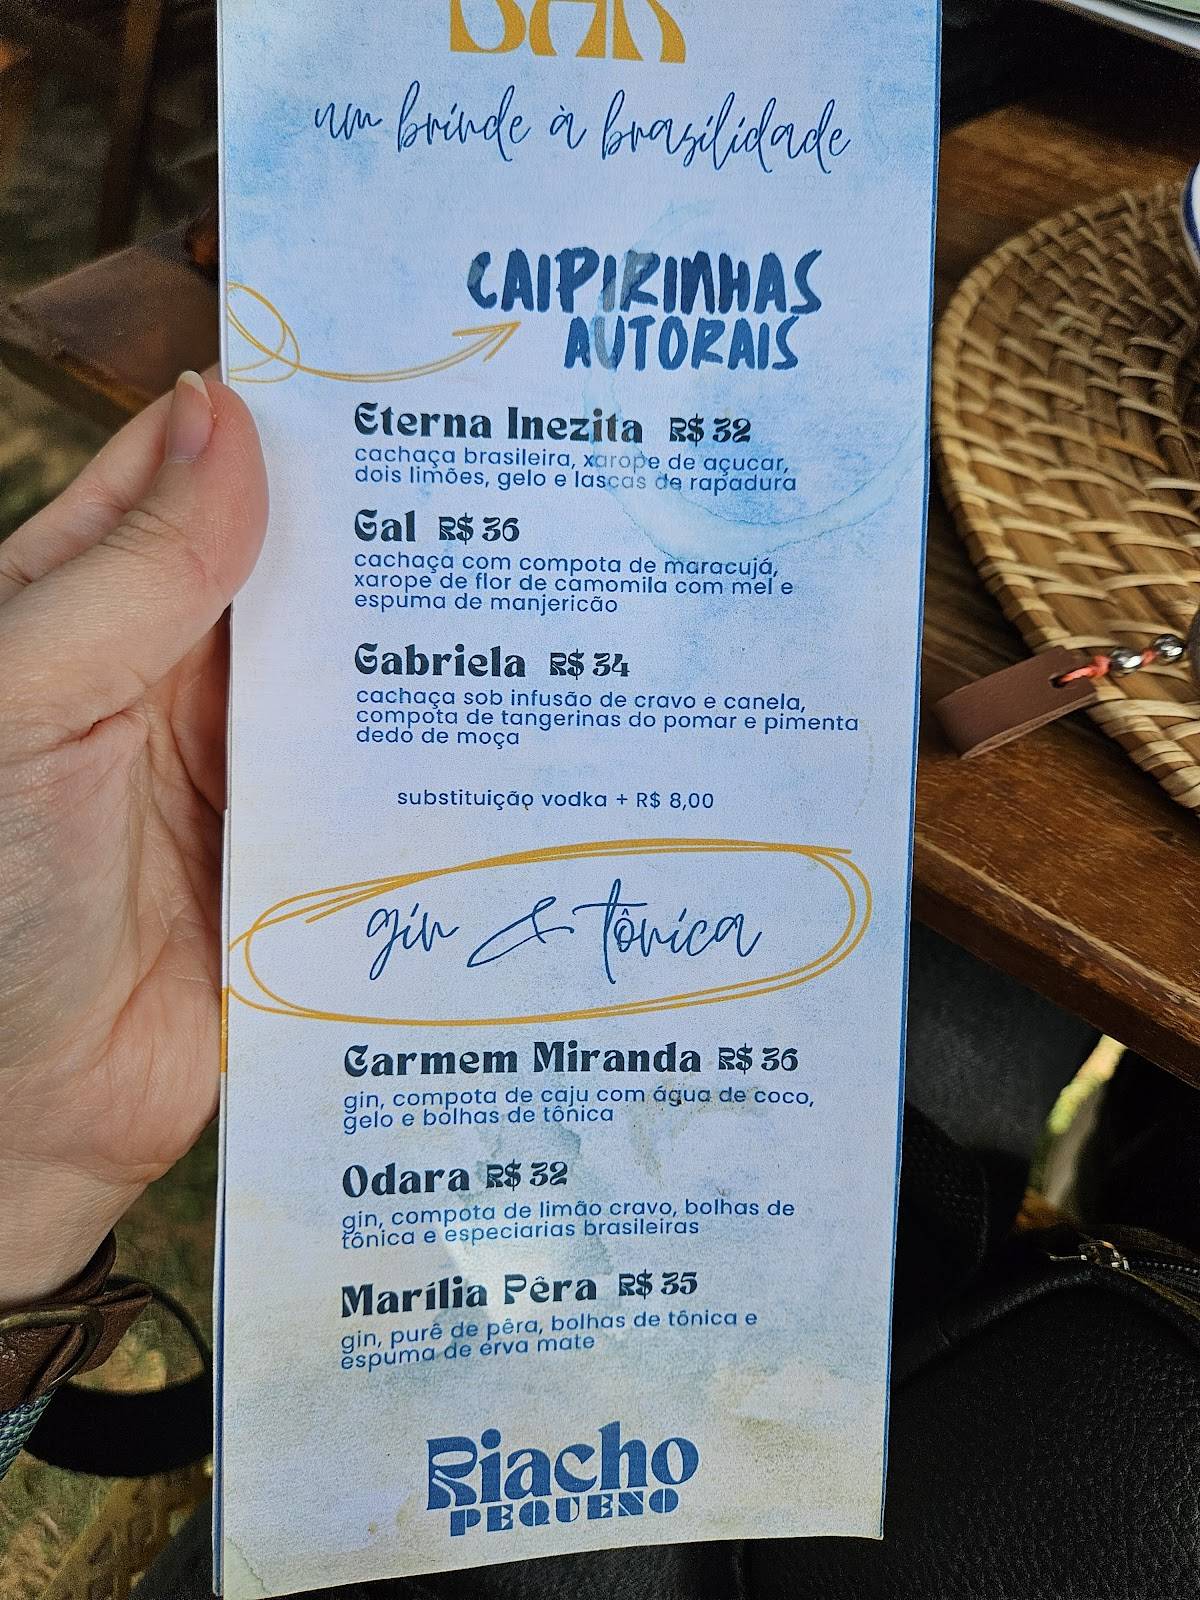 BAR
um brinde à brasilidade
CAIPIRINHAS
AUTORAIS
Eterna Inezita R$ 32
cachaça brasileira, xarope de açucar,
dois limões, gelo e lascas de rapadura
Gal R$ 36
cachaça com compota de maracujá,
xarope de flor de camomila com mel e
espuma de manjericão
Gabriela R$ 34
cachaça sob infusão de cravo e canela,
compota de tangerinas do pomar e pimenta
dedo de moça
substituição vodka + R$ 8,00
gin & tônica
Carmem Miranda R$ 36
gin, compota de caju com água de coco,
gelo e bolhas de tônica
Odara R$ 32
gin, compota de limão cravo, bolhas de
tônica e especiarias brasileiras
Marília Pêra R$ 35
gin, purê de pêra, bolhas de tônica e
espuma de erva mate
Riacho
PEQUENO